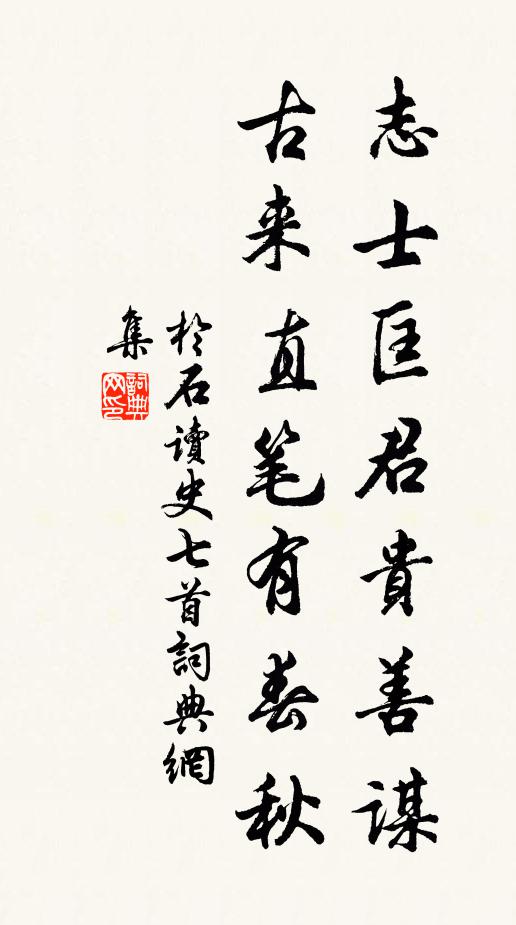 志士匡君貴善謀
古来直笔有春秋
於石讀史七首詞典網
集
詞典
网印